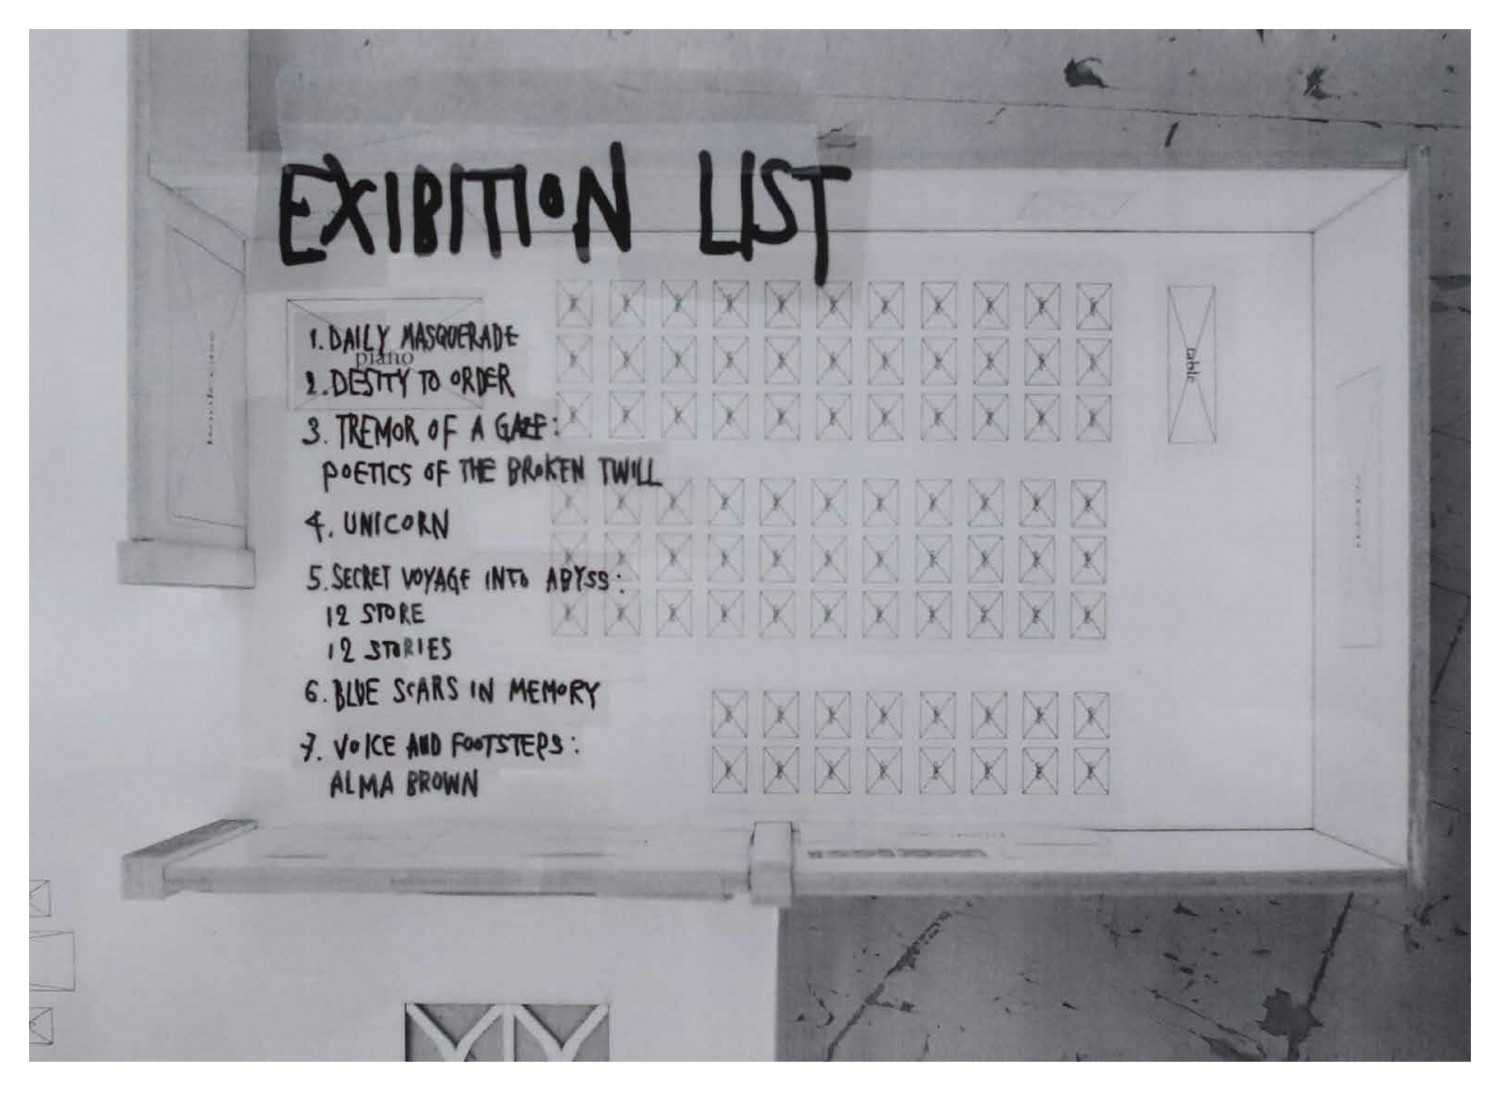 EXIBITION LIST
1. DAILY MASQUERADE
piano
2. DESITY TO ORDER
3. TREMOR OF A GAZE:
POETICS OF THE BROKEN TWILL
4. UNICORN
5. SECRET VOYAGE INTO ABYSS:
12 STORE
12 STORIES
6. BLUE SCARS IN MEMORY
7. VOICE AND FOOTSTEPS:
ALMA BROWN
table